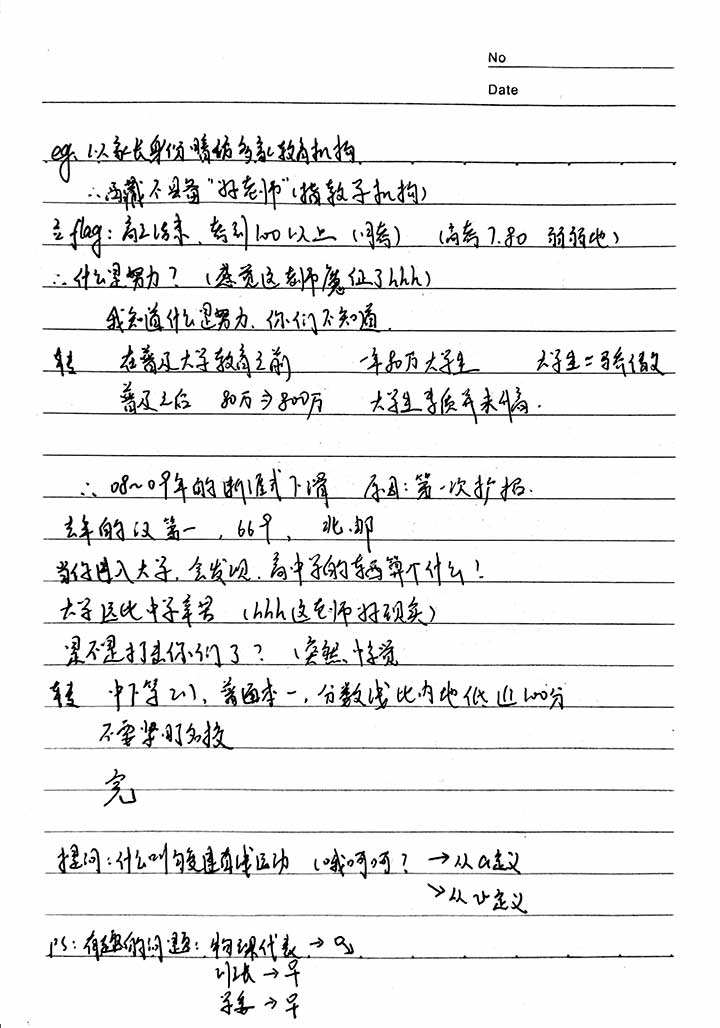 No
Date
eg. 以家长身份暗访多家教育机构
∴西藏不具备“好老师”(指教学机构)
立flag: 高三结束、考到100以上 (月考) (高考7.80 弱弱地)
∴什么是努力? (感觉这老师魔怔了hhh)
我知道什么是努力、你们不知道.
转 在普及大学教育之前 一年80万大学生 大学生=骄傲
普及之后 80万→800万 大学生素质并未升高.
∴08~09年的断崖式下滑 原因:第一次扩招.
去年的汉第一, 669, 北邮
当你进入大学, 会发现, 高中学的东西算个什么!
大学远比中学辛苦 (hhh这老师好现实)
是不是打击你们了? (突然
转 中下等211, 普通本一, 分数线比内地低近100分
不要紧盯名校
完
提问:什么叫匀变速直线运动 (哦呵呵? →从a定义
→从v定义
PS:有趣的问题:物理代表→
班长→早
学委→早